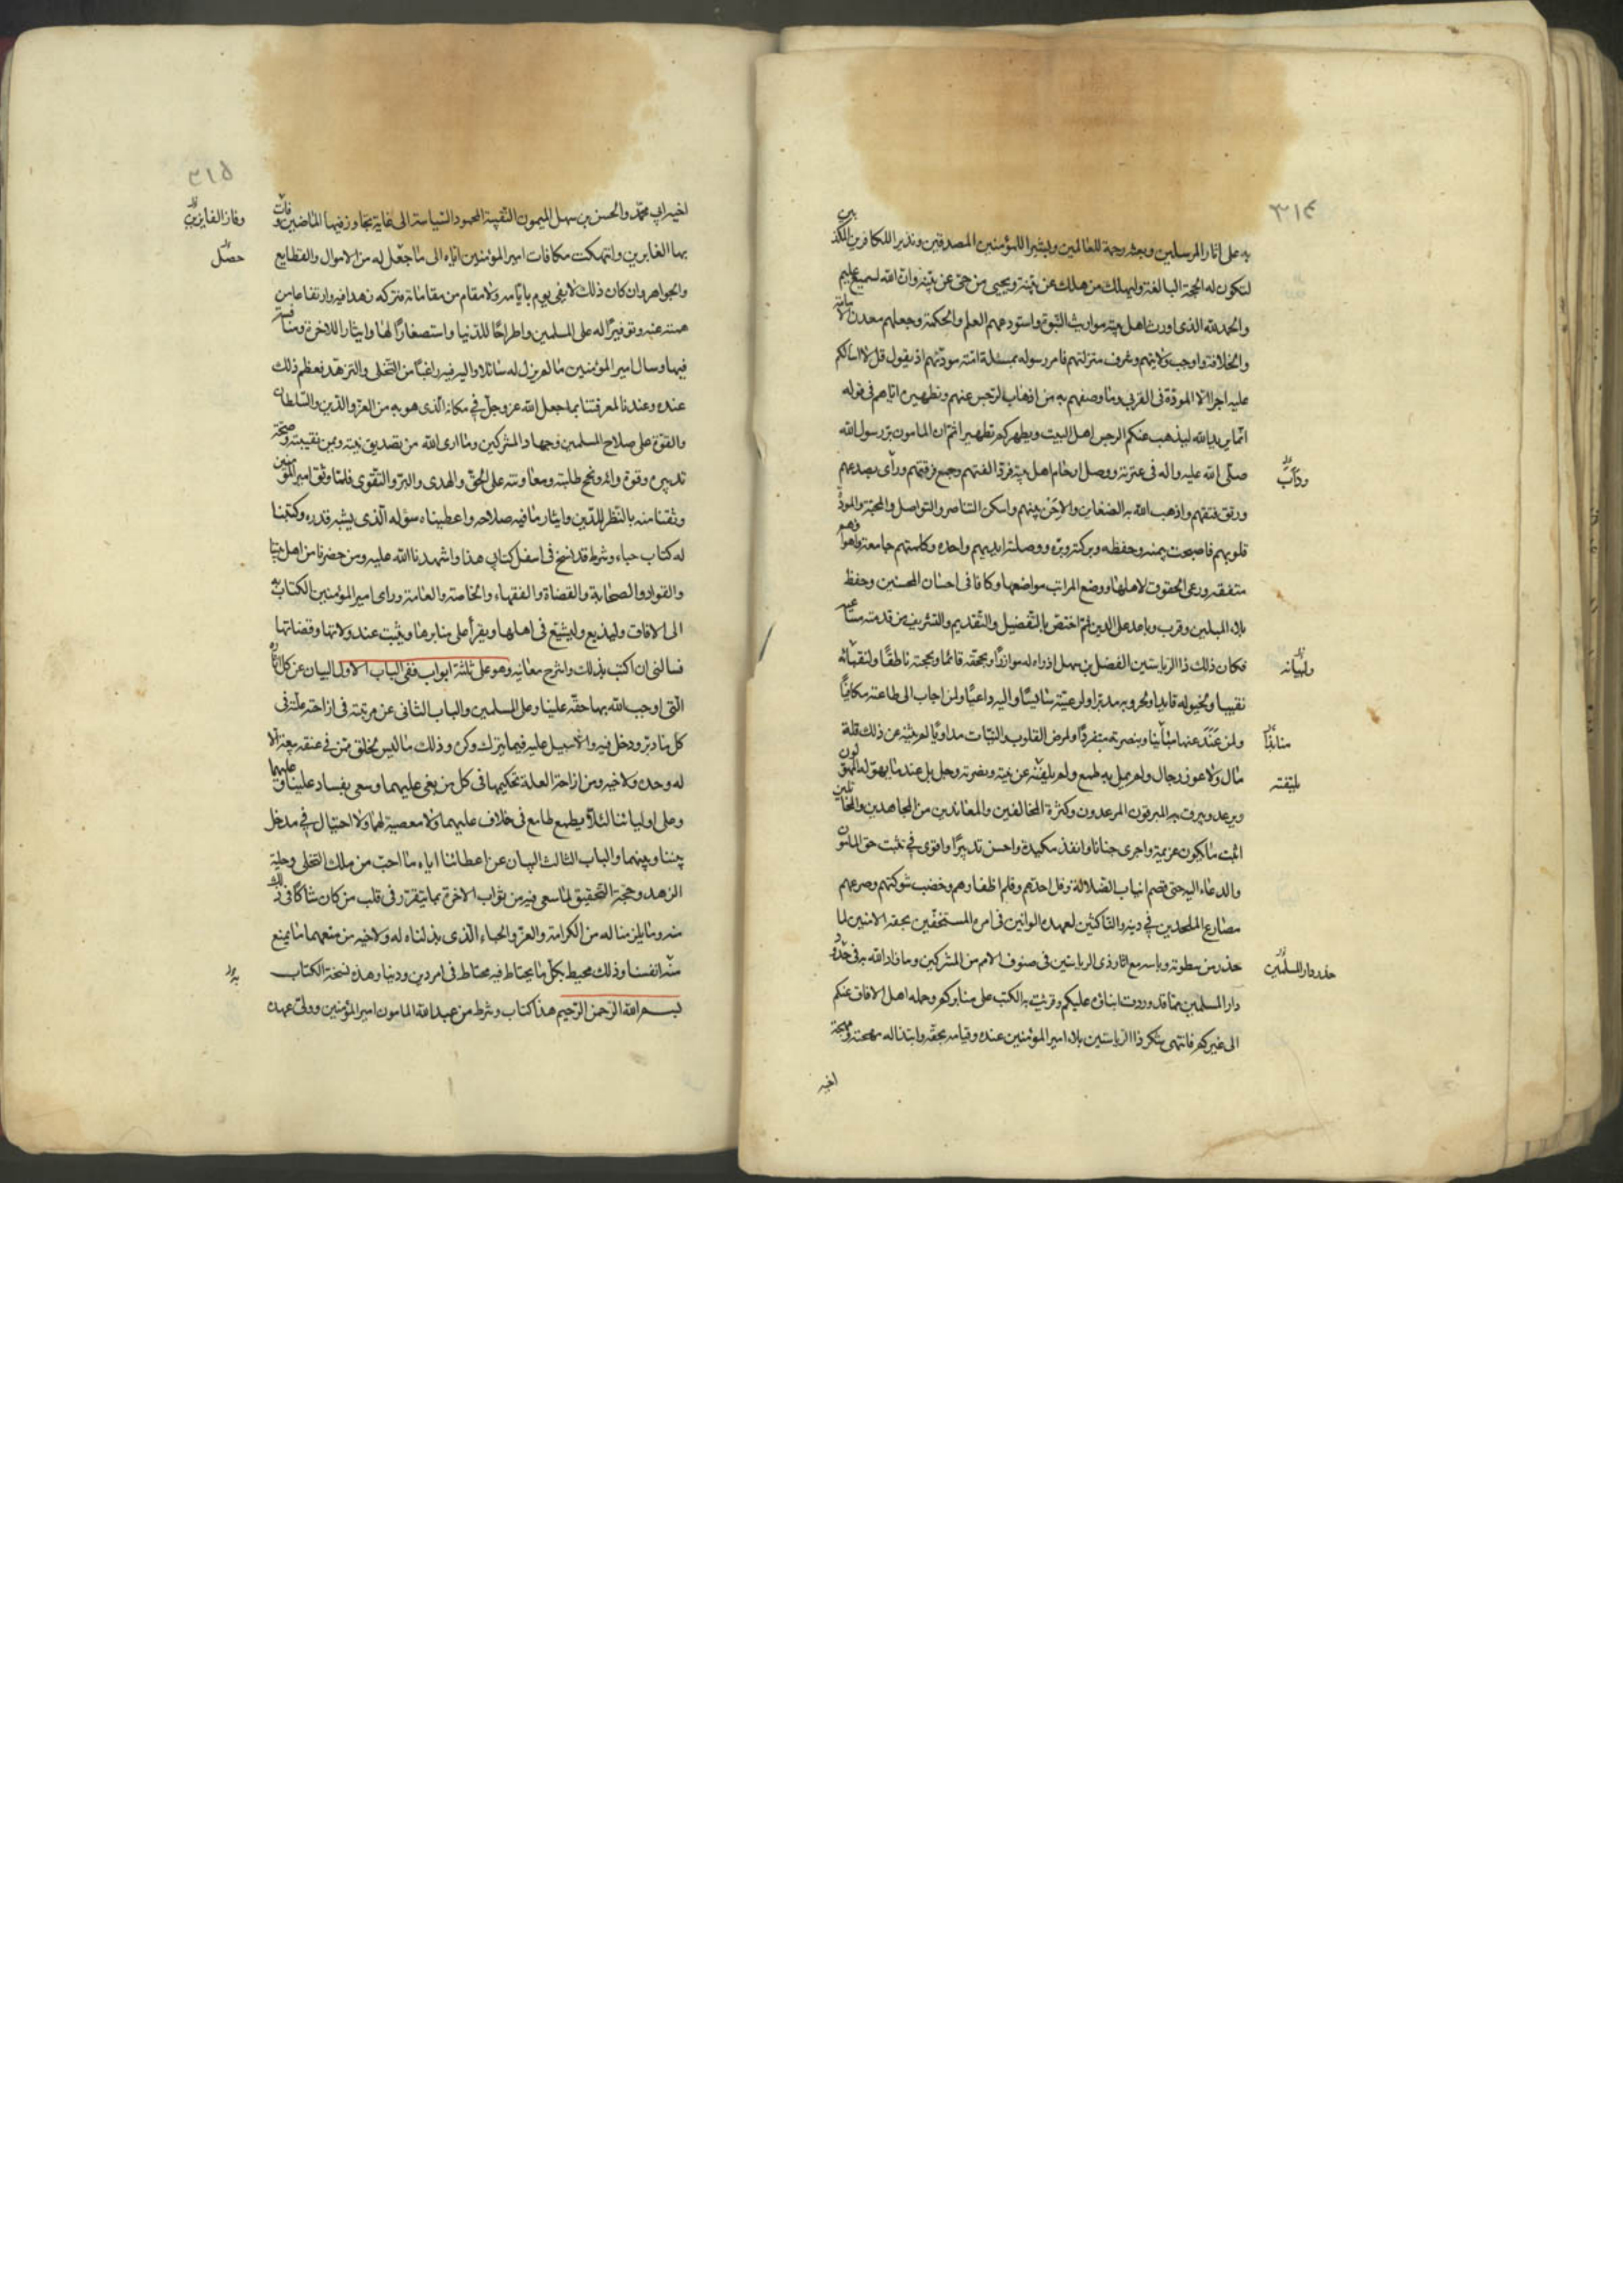 ٣١٤
به على اثار المرسلين وبعثه رحمة للعالمين وبشيرا للمؤمنين المصدقين ونذيرا للكافرين المكذبين
لتكون له الحجة البالغة وليهلك من هلك عن بينة ويحيى من حى عن بينة وان الله لسميع عليم
والحمد لله الذى اورث اهل بيته مواريث النبوة واستودعهم العلم والحكمة وجعلهم معدن الامامة
والخلافة واوجب ولايتهم وشرف منزلتهم فامر رسوله بمسئلة امته مودتهم اذ يقول قل لا اسالكم
عليه اجرا الا المودة فى القربى وما وصفهم به من اذهاب الرجس عنهم وتطهيره اياهم فى قوله
انما يريد الله ليذهب عنكم الرجس اهل البيت ويطهركم تطهيرا ثم ان المامون بر رسول الله
صلى الله عليه واله فى عترته ووصل ارحام اهل بيته فرد الفتهم وجمع فرقتهم ورأى صدعهم
ورتق فتقهم واذهب الله به الضغاين والاحن بينهم واسكن التناصر والتواصل والمحبة والمودة
قلوبهم فاصبحت بيمنه وحفظه وبركته وبره ووصلته ايديهم واحدة وكلمتهم جامعة واهواؤهم
متفقه ورعى الحقوق لاهلها ووضع المراتب مواضعها وكافا فى احسان المحسنين وحفظ
بلاء المبلين وقرب وباعد على الدين ثم اختص بالتفضيل والتقديم والتشريف من قدمته مساعيه
فكان ذلك ذا الرياستين الفضل بن سهل اذ راه له موازرا وبحقه قائما وبحجته ناطقا ولنقبائه
نقيبا ولخيوله قايدا ولحروبه مدبرا ولرعيته سايسا واليه داعيا ولمن اجاب الى طاعته مكافيا
ولمن عند عنها مباينا وبنصرته متفردا ولمرض القلوب والنيات مداويا لم يثنه عن ذلك قلة
مال ولا عوز رجال ولم يمل به طمع ولم يلفته عن نيته وبصيرته وجل بل عند ما يهوله المهولون
ويرعد ويبرق به المبرقون المرعدون وكثرة المخالفين والمعاندين من المجاهدين والمخاتلين
اثبت ما يكون عزيمة واجرى جنانا وانفذ مكيدة واحسن تدبيرا واقوى فى تثبت حق المامون
والدعاء اليه حتى قصم انياب الضلالة وفل حدهم وقلم اظفارهم وخضب شوكتهم وصرعهم
مصارع الملحدين فى دينه والناكثين لعهده الوانين فى امره المستخفين بحقه الامنين لما
حذر من سطوته وباسه مع اثار ذى الرياستين فى صنوف الامم من المشركين وما زاد الله به فى حدود
دار المسلمين مما قد وردت انباؤه عليكم وقرئت به الكتب على منابركم وحمله اهل الافاق عنكم
الى غيركم فانتهى شكر ذا الرياستين بلاء امير المؤمنين عنده وقيامه بحقه وابتذاله مهجته ومهجة
اخيه
ودأب
ولبيانه
منابذا
يلتفته
حذر دار المسلمين
٣١٥
اخيه ابى محمد والحسن بن سهل الميمون النقيبة المحمود السياسة الى غاية تجاوز فيها الماضين وفات
بها الغابرين وانتهكت مكافات امير المؤمنين اياه الى ما جعل له من الاموال والقطايع
والجواهر وان كان ذلك لا يفى بيوم بايامه ولا مقام من مقاماته فتركه زهدا فيه وارتفاعا من
همته عنه وتوفيرا له على المسلمين واطراحا للدنيا واستصغارا لها وايثارا للاخرة ومنافسة
فيها وسال امير المؤمنين ما لم يزل له سائلا واليه فيه راغبا من التخلى والتزهد فعظم ذلك
عنده وعندنا لمعرفتنا بما جعل الله عز وجل فى مكانه الذى هو به من العز والدين والسلطان
والقوة على صلاح المسلمين وجهاد المشركين وما ارى الله من تصديق نيته ويمن نقيبته وصحة
تدبيره وقوة رائه ونجح طلبته ومعاونته على الحق والهدى والبر والتقوى فلما وثق امير المؤمنين
وثقنا منه بالنظر للدين وايثار ما فيه صلاحه واعطيناه سؤله الذى يشبه قدره وكتبنا
له كتاب حباء وشرط قد نسخ فى اسفل كتابى هذا واشهدنا الله عليه ومن حضرنا من اهل بيتنا
والقواد والصحابة والقضاة والفقهاء والخاصة والعامة وراى امير المؤمنين الكتاب به
الى الافاق وليذيع وليشيع فى اهلها ويقرأ على منابرها ويثبت عند ولاتها وقضاتها
فسالنى ان اكتب بذلك واشرح معانيه وهو على ثلثة ابواب ففى الباب الاول البيان عن كل اثاره
التى اوجب الله بها حقه علينا وعلى المسلمين والباب الثانى عن مرتبته فى ازاحة علته فى
كل ما دبر ودخل فيه ولا سبيل عليه فيما يترك وكره وذلك ما ليس لخلق ممن فى عنقه بيعة الا
له وحده ولاخيه ومن ازاحة العلة تحكيمهما فى كل من بغى عليهما وسعى بفساد علينا وعليهما
وعلى اوليائنا لئلا يطمع طامع فى خلاف عليهما ولا معصية لهما ولا احتيال فى مدخل
بيننا وبينهما والباب الثالث البيان عن اعطائنا اياه ما احب من ملك التخلى وحلية
الزهد وحجة التحقيق لما سعى فيه من ثواب الاخرة بما يتقرر فى قلب من كان شاكا فى ذلك
منه وما يلزمنا له من الكرامة والعز والحباء الذى بذلناه له ولاخيه من منعهما ما يمنع
منه انفسنا وذلك محيط بكل ما يحتاط فيه محتاط فى امر دين ودنيا وهذه نسخة الكتاب
بسم الله الرحمن الرحيم هذا كتاب وشرط من عبد الله المامون امير المؤمنين وولى عهده
وفاز الفايزين
حصل
به